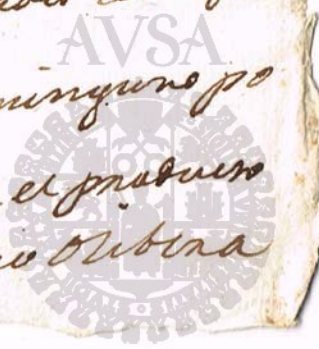 AVSA
ninguno po
el producto
io Olibera